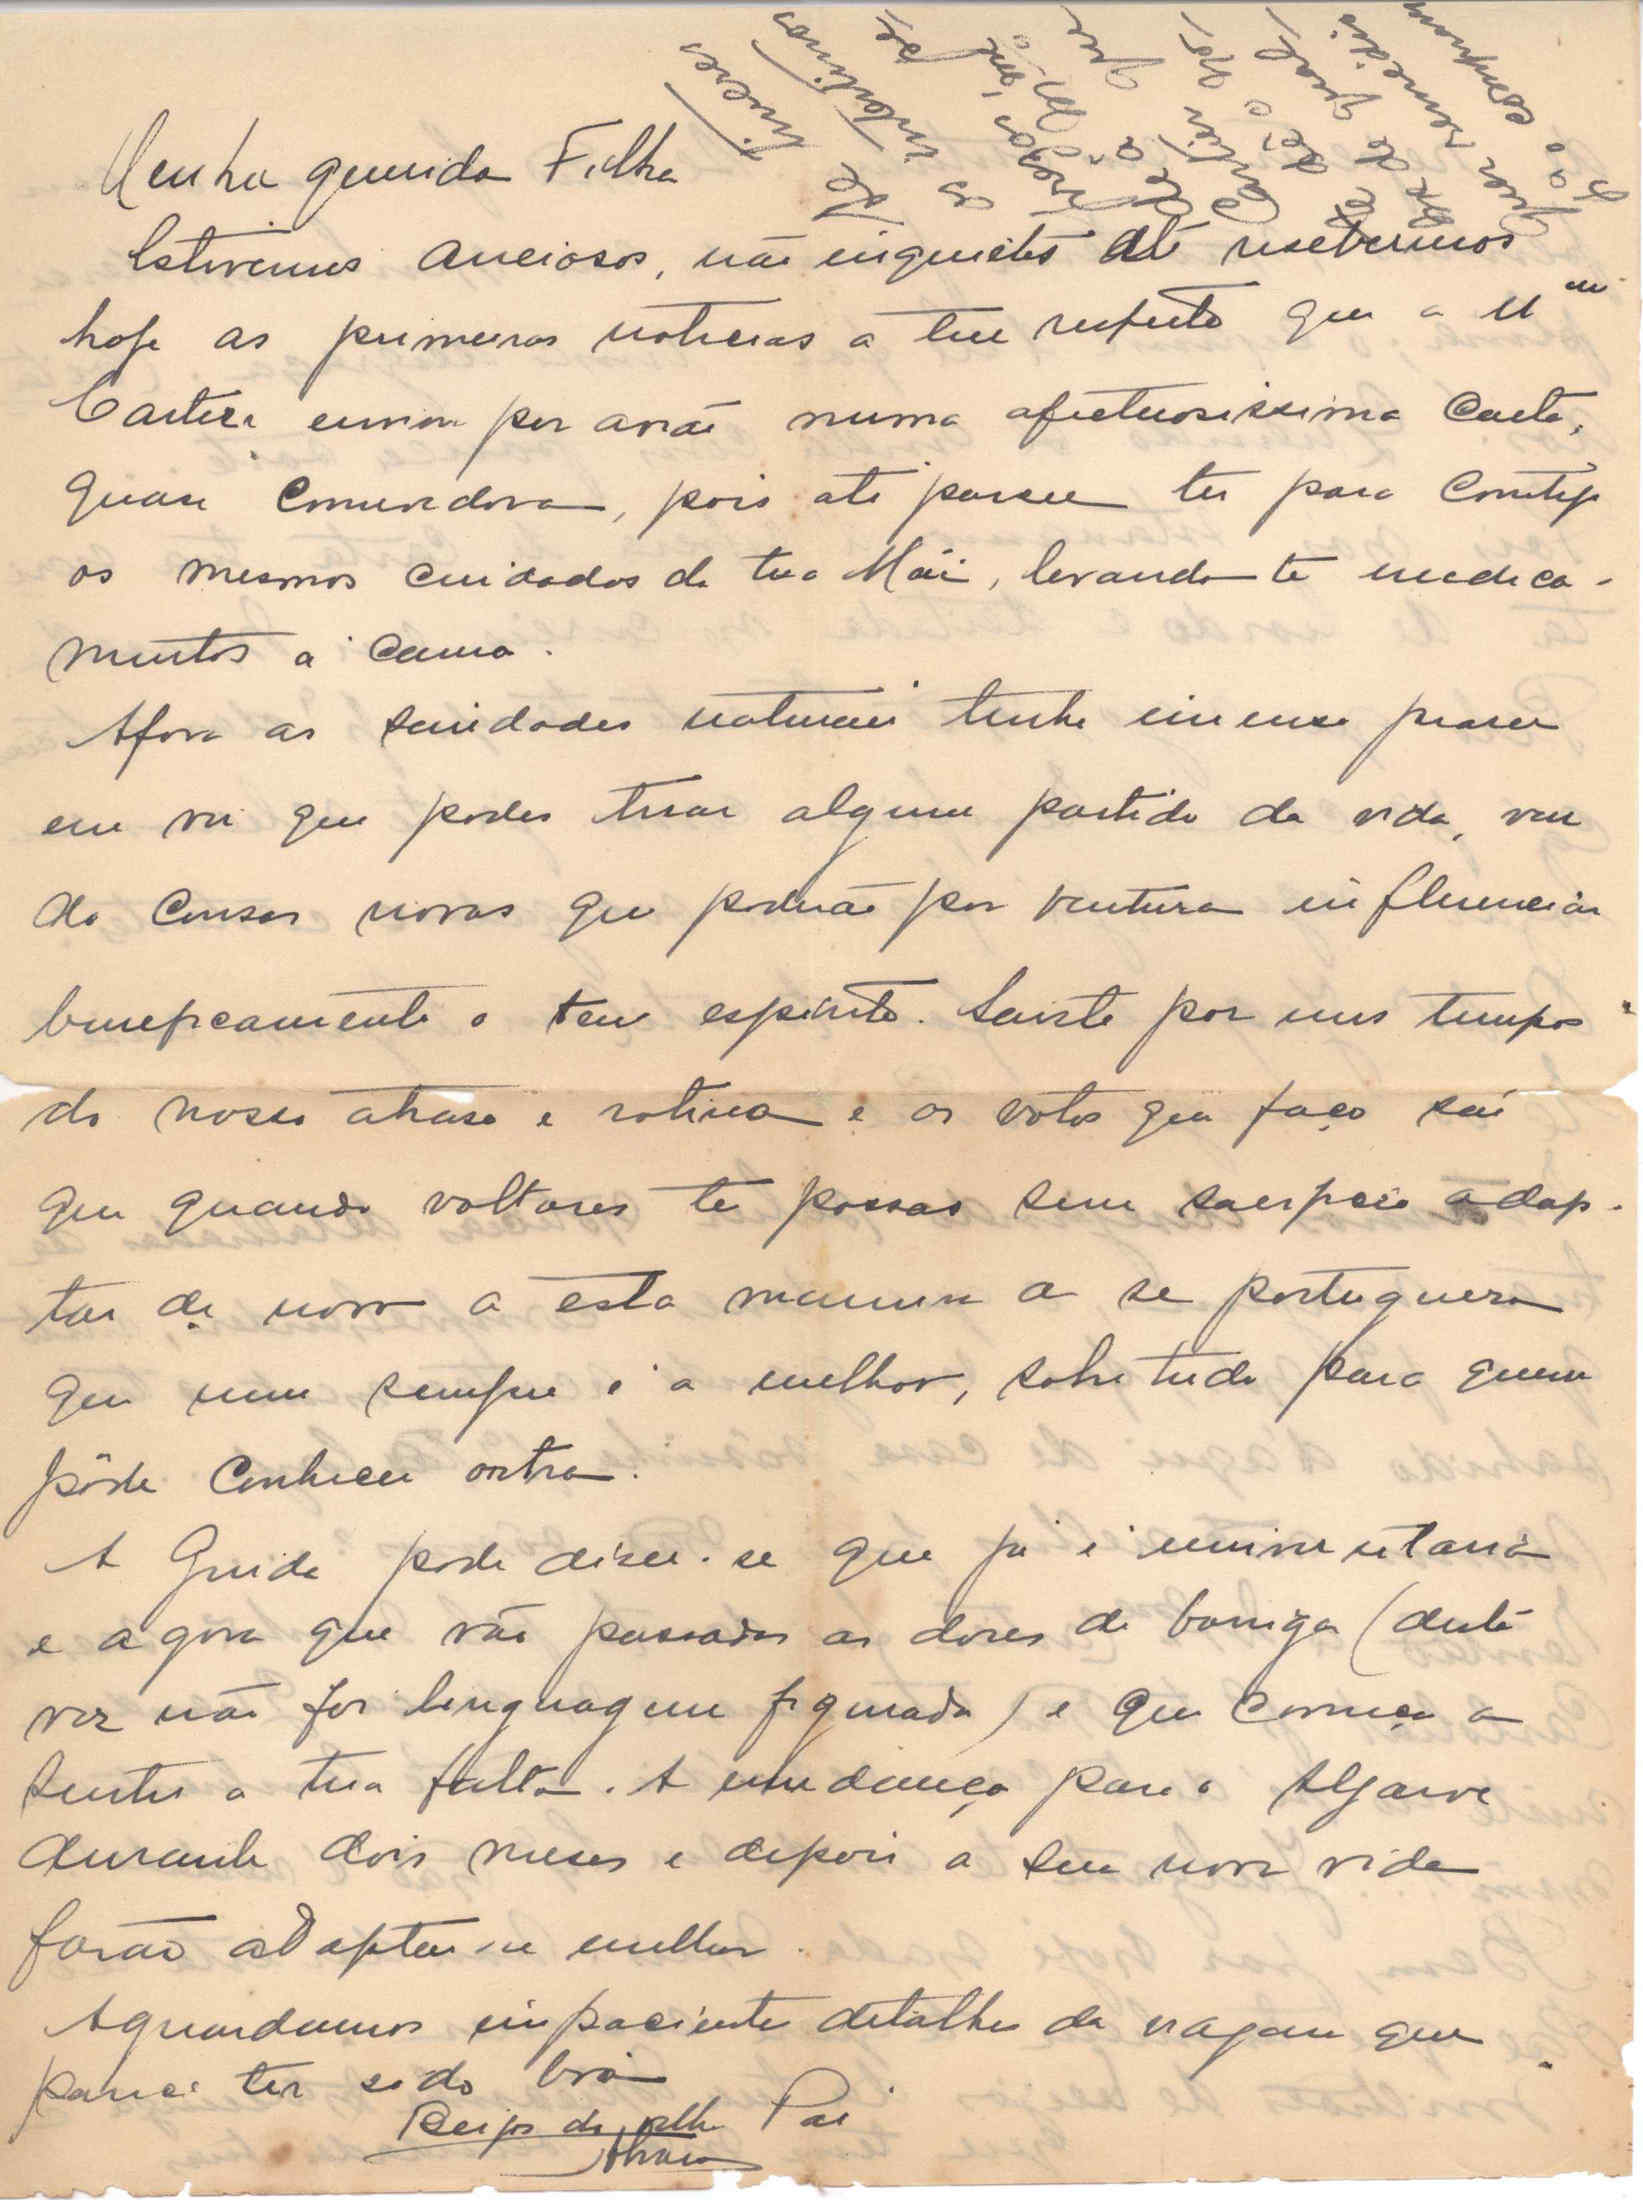 Minha querida Filha
Estivemos anciosos, não inquietos até recebermos
hoje as primeiras noticias a teu respeito que a M.me
Cartier enviou por avião numa afectuosissima carta,
quasi comovedora, pois até parece ter para comtigo
os mesmos cuidados da tua Mãi, levando-te medica-
mentos á cama.
Afora as saudades naturais tenho imenso prazer
em ver que podes tirar algum partido da vida, ven
do cousas novas que poderão por ventura influenciar
beneficamente o teu espirito. Saiste por uns tempos
do nosso atraso e rotina e os votos que faço são
que quando voltares te possas sem sacrificio adap-
tar de novo a esta maneira de ser portuguesa
que nem sempre é a melhor, sobretudo para quem
pôde conhecer outra.
A Guida pode dizer-se que já é universitaria
e agora que vão passadas as dores de barriga (desta
vez não foi linguagem figurada) é que começa a
sentir a tua falta. A mudança para o Algarve
durante dois meses e depois a sua nova vida
farão adaptar-se melhor.
Aguardamos impacientes detalhes da viagem que
parece ter sido boa
Beijos do velho Pai
Se tiveres
os intestinos
presos,
pede á M.me
Cartier que
te dê
qual-
quer remedio